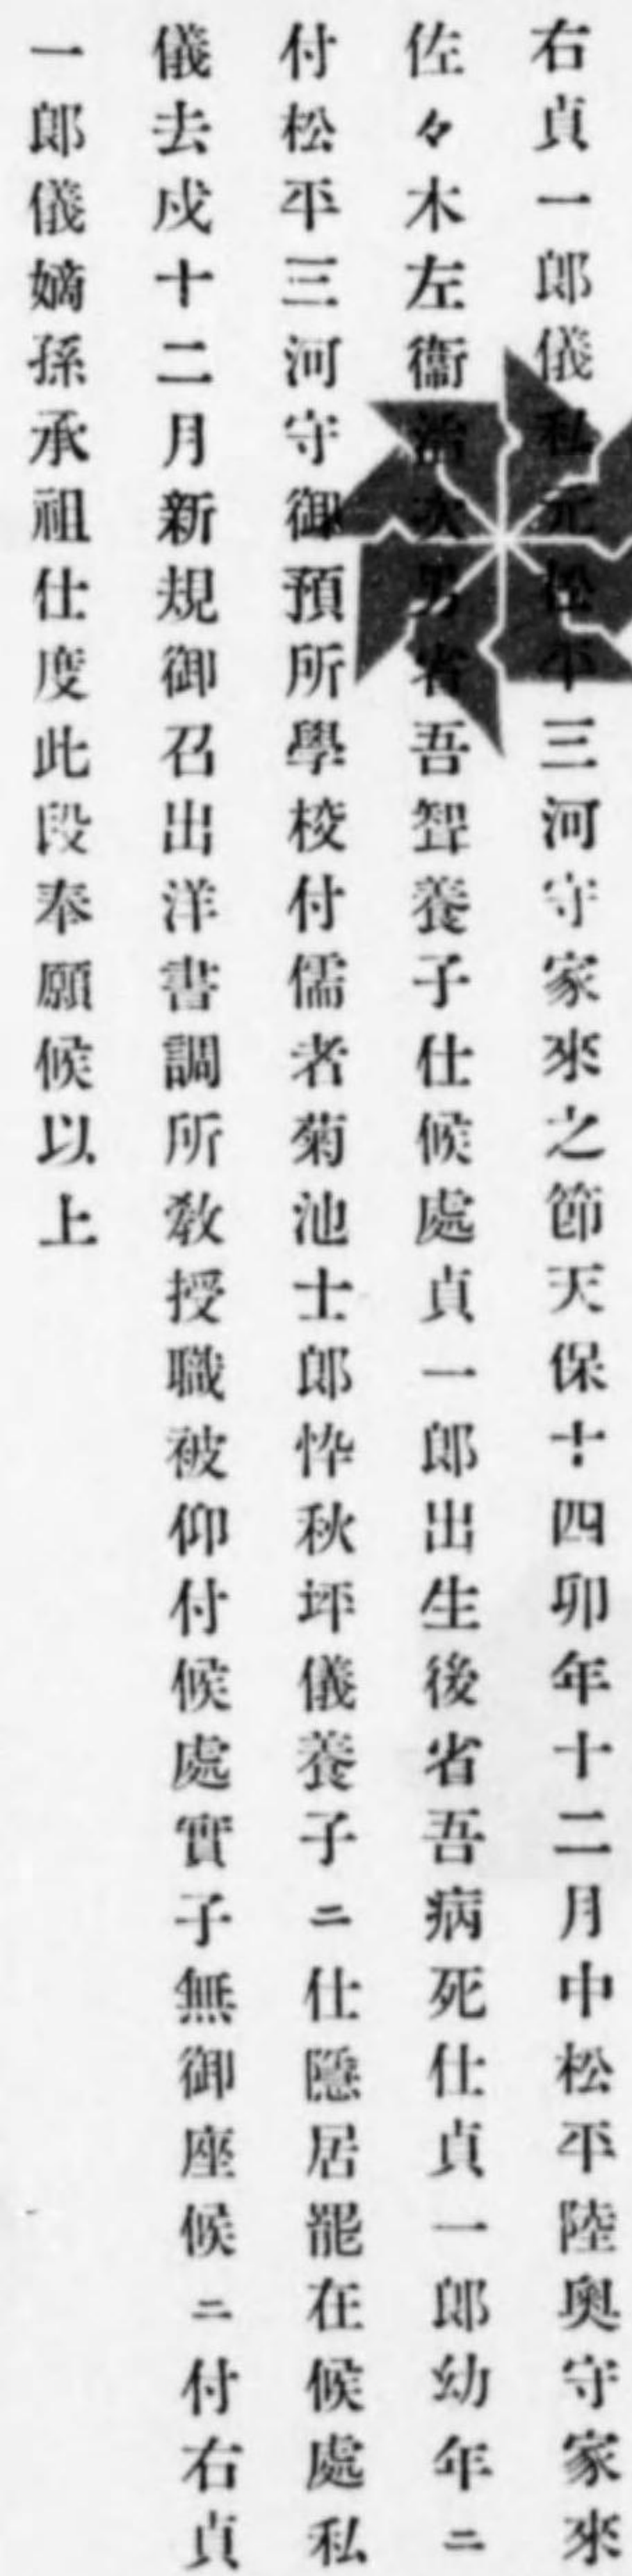 右貞一郎儀私元松平三河守家來之節天保十四卯年十二月中松平陸奥守家來
佐々木左衞治次男省吾聟養子仕候處貞一郎出生後省吾病死仕貞一郎幼年ニ
付松平三河守御預所學校付儒者菊池士郎忰秋坪儀養子ニ仕隱居罷在候處私
儀去戍十二月新規御召出洋書調所敎授職被仰付候處實子無御座候ニ付右貞
一郎儀嫡孫承祖仕度此段奉願候以上